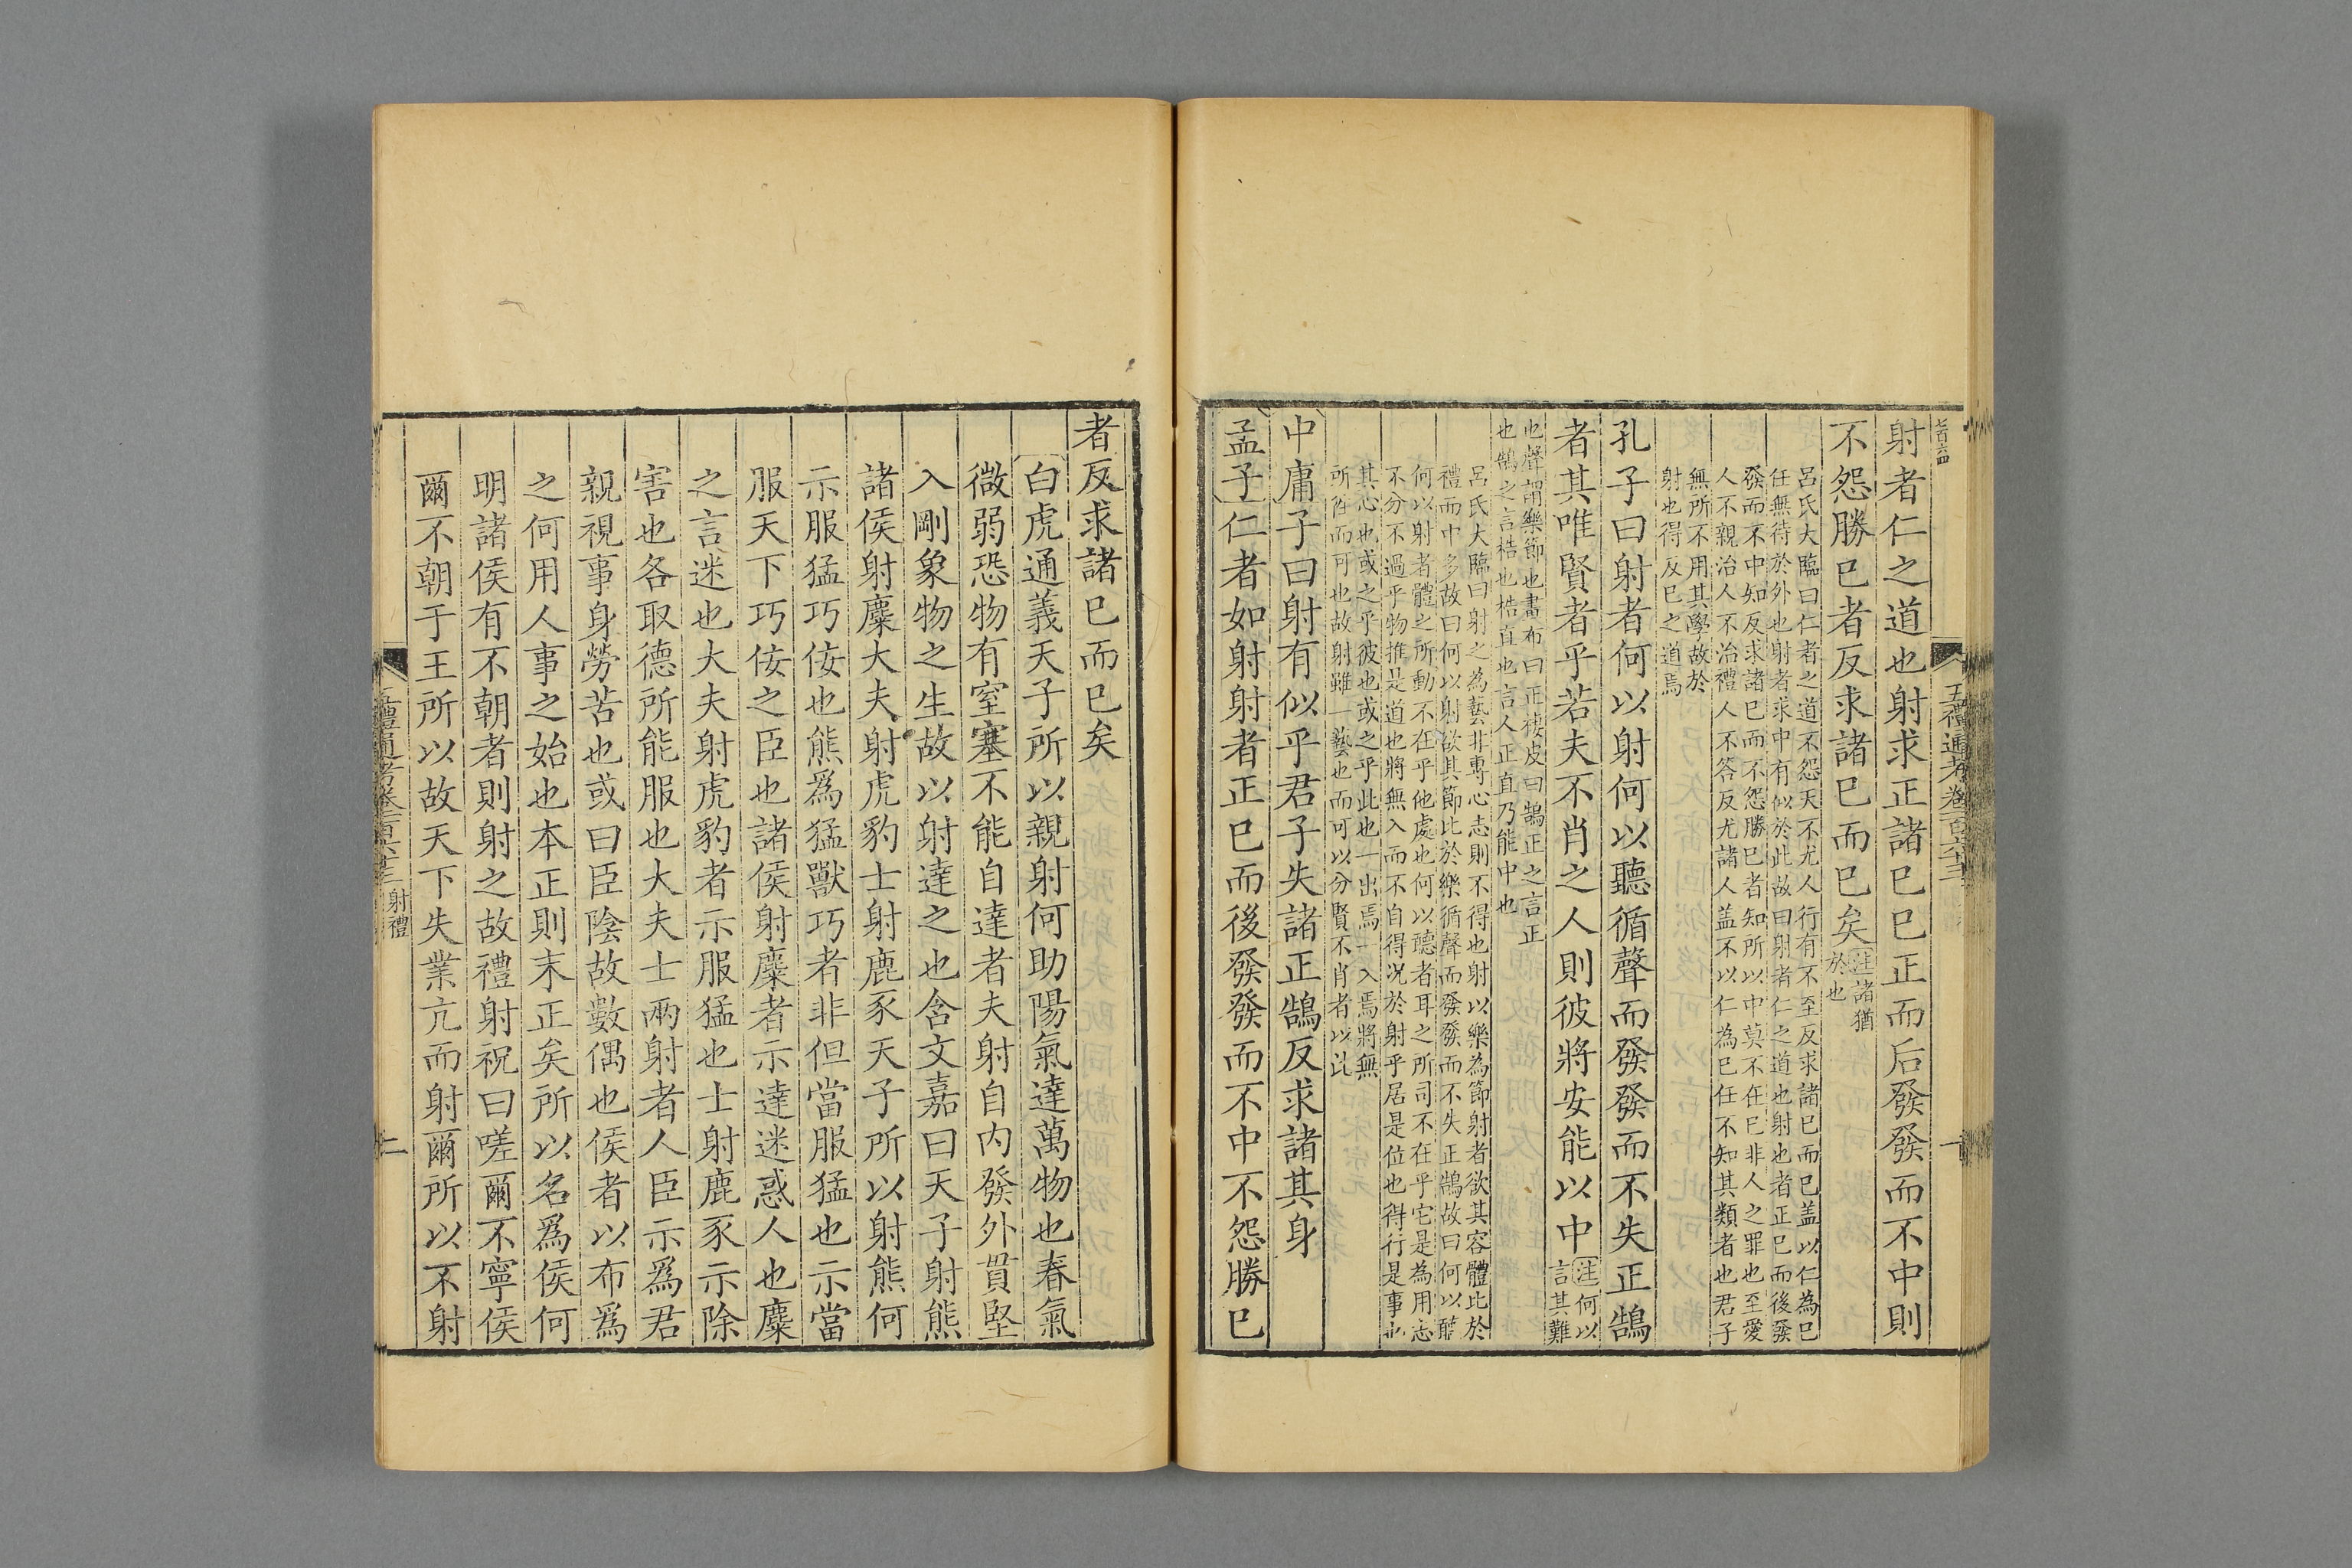 射者仁之道也射求正諸已已正而后發發而不中則
不怨勝已者反求諸已而已矣注諸猶
於也
呂氏大臨曰仁者之道不怨天不尤人行有不至反求諸已而已蓋以仁為已
任無待於外也射者求中有似於此故曰射者仁之道也射也者正已而後發
發而不中知反求諸已而不怨勝已者知所以中莫不在已非人之罪也至愛
人不親治人不治禮人不答反尤諸人蓋不以仁為已任不知其類者也君子
無所不用其學故於
射也得反已之道焉
孔子曰射者何以射何以聽循聲而發發而不失正鵠
者其唯賢者乎若夫不肖之人則彼將安能以中注何以
言其難
也聲謂樂節也畫布曰正棲皮曰鵠正之言正
也鵠之言梏也梏直也言人正直乃能中也
呂氏大臨曰射之為藝非專心志則不得也射以樂為節射者欲其容體比於
禮而中多故曰何以射欲其節比於樂循聲而發發而不失正鵠故曰何以聽
何以射者體之所動不在乎他處也何以聽者耳之所司不在乎它是為用志
不分不過乎物推是道也將無入而不自得况於射乎居是位也得行是事也
其心也或之乎彼也或之乎此也一出焉一入焉將無
所往而可也故射雖一藝也而可以分賢不肖者以此
中庸子曰射有似乎君子失諸正鵠反求諸其身
孟子仁者如射射者正已而後發發而不中不怨勝已
五禮通考卷一百六十三
一
者反求諸已而已矣
白虎通義天子所以親射何助陽氣達萬物也春氣
微弱恐物有窒塞不能自達者夫射自内發外貫堅
入剛象物之生故以射達之也含文嘉曰天子射熊
諸侯射麋大夫射虎豹士射鹿豕天子所以射熊何
示服猛巧佞也熊爲猛獸巧者非但當服猛也示當
服天下巧佞之臣也諸侯射麋者示達迷惑人也麋
之言迷也大夫射虎豹者示服猛也士射鹿豕示除
害也各取德所能服也大夫士兩射者人臣示爲君
親視事身勞苦也或曰臣陰故數偶也侯者以布爲
之何用人事之始也本正則末正矣所以名爲侯何
明諸侯有不朝者則射之故禮射祝曰嗟爾不寧侯
爾不朝于王所以故天下失業亢而射爾所以不射
五禮通考卷一百六十三 射禮
二